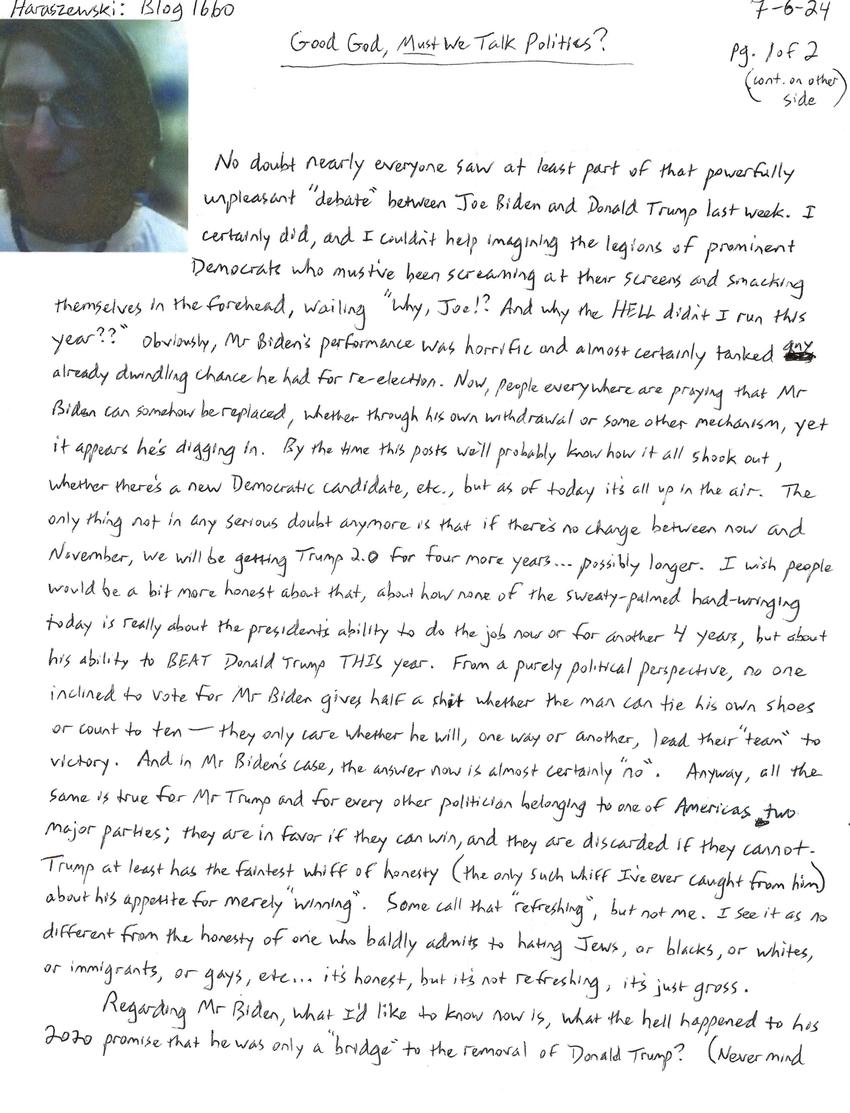 Haraszewski: Blog 1660
7-6-24
Good God, Must We Talk Politics?
pg. 1 of 2
(cont. on other
side)
No doubt nearly everyone saw at least part of that powerfully
unpleasant "debate" between Joe Biden and Donald Trump last week. I
certainly did, and I couldn't help imagining the legions of prominent
Democrats who must've been screaming at their screens and smacking
themselves in the forehead, wailing "Why, Joe!? And why the HELL didn't I run this
year??" Obviously, Mr Biden's performance was horrific and almost certainly tanked any
already dwindling chance he had for re-election. Now, people everywhere are praying that Mr
Biden can somehow be replaced, whether through his own withdrawal or some other mechanism, yet
it appears he's digging in. By the time this posts we'll probably know how it all shook out,
whether there's a new Democratic candidate, etc., but as of today it's all up in the air. The
only thing not in any serious doubt anymore is that if there's no change between now and
November, we will be getting Trump 2.0 for four more years... possibly longer. I wish people
would be a bit more honest about that, about how none of the sweaty-palmed hand-wringing
today is really about the president's ability to do the job now or for another 4 years, but about
his ability to BEAT Donald Trump THIS year. From a purely political perspective, no one
inclined to vote for Mr Biden gives half a shit whether the man can tie his own shoes
or count to ten — they only care whether he will, one way or another, lead their "team" to
victory. And in Mr Biden's case, the answer now is almost certainly "no". Anyway, all the
same is true for Mr Trump and for every other politician belonging to one of Americas two
major parties; they are in favor if they can win, and they are discarded if they cannot.
Trump at least has the faintest whiff of honesty (the only such whiff I've ever caught from him)
about his appetite for merely "winning". Some call that "refreshing", but not me. I see it as no
different from the honesty of one who baldly admits to hating Jews, or blacks, or whites,
or immigrants, or gays, etc... it's honest, but it's not refreshing, it's just gross.
Regarding Mr Biden, what I'd like to know now is, what the hell happened to his
2020 promise that he was only a "bridge" to the removal of Donald Trump? (Never mind